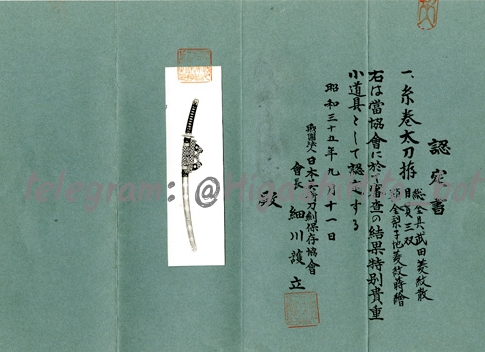 認定書
一、糸巻太刀拵
総金具武田菱紋散
目貫三双
鞘金梨子地菱紋蒔繪
右は當協會に於て審査の結果特別貴重
小道具として認定する
昭和三十五年九月十一日
財團法人日本美術刀劍保存協會
會長 細川護立
殿
telegram: @Hig